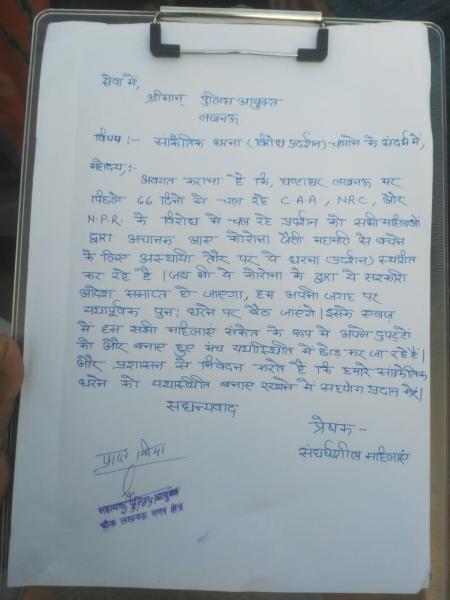 सेवा में,
श्रीमान् पुलिस आयुक्त
लखनऊ
विषय :- सांकेतिक धरना (विरोध प्रदर्शन) चलाने के संदर्भ में,
महोदय,:-
अवगत कराना है कि, घण्टाघर लखनऊ पर
पिछले 66 दिनों से चल रहे C.A.A, N.R.C, और
N.P.R. के विरोध में चल रहे प्रदर्शन को सभी महिलाओं
द्वारा अचानक आस कोरोना जैसी महामारी से बचने
के लिए अस्थायी तौर पर ये धरना (प्रदर्शन) स्थगित
कर रहे है। जब भी ये कोरोना के द्वारा ये सरकारी
आदेश समाप्त हो जाएगा, हम अपनी जगह पर
यथापूर्वक पुनः धरने पर बैठ जाएगें। इसके एवज़
में हम सभी महिलाएं संकेत के रूप में अपने दुपट्टो
को और बनाए हुए मंच यथास्थिति में छोड़ कर जा रहे है।
और प्रशासन से निवेदन करते है कि हमारे सांकेतिक
धरने को यथास्थिति बनाए रखने में सहयोग प्रदान करें।
सधन्यवाद
प्रेषक -
संघर्षशील महिलाएं
सहायक पुलिस आयुक्त
चौक लखनऊ नगर क्षेत्र